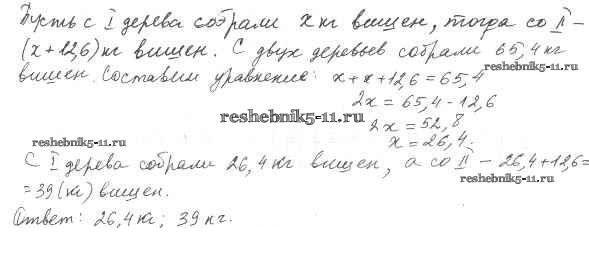 Пусть с I дерева собрали x кг вишен, тогда со II –
(x + 12,6) кг вишен. С двух деревьев собрали 65,4 кг
вишен. Составим уравнение: x + x + 12,6 = 65,4
reshebnik5-11.ru
2x = 65,4 - 12,6
reshebnik5-11.ru
2x = 52,8
x = 26,4.
reshebnik5-11.ru
С I дерева собрали 26,4 кг вишен, а со II – 26,4 + 12,6 =
reshebnik5-11.ru
= 39 (кг) вишен.
Ответ: 26,4 кг; 39 кг.